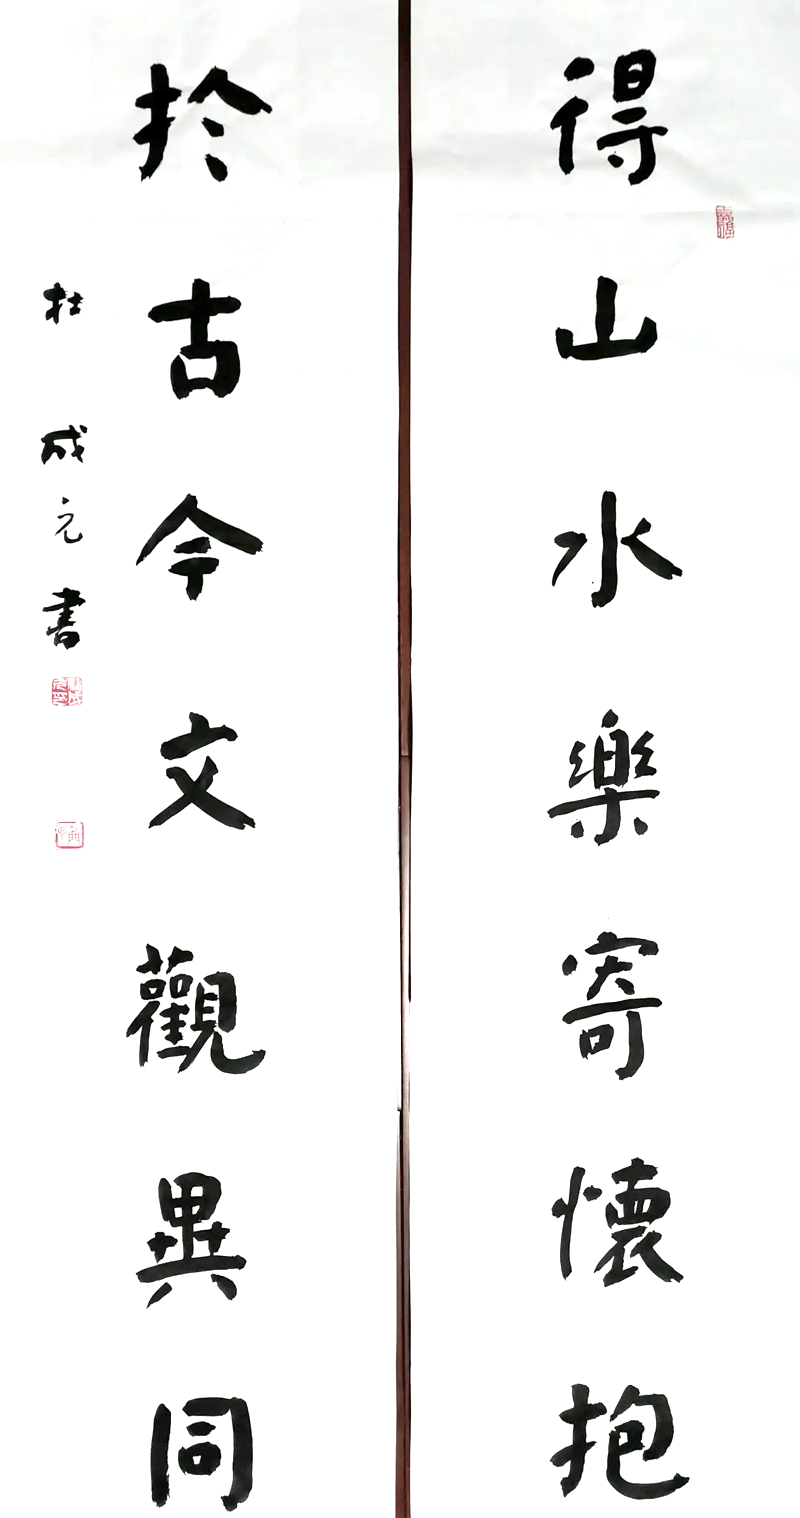 得山水樂寄懷抱
於古今文觀異同
杜成元書